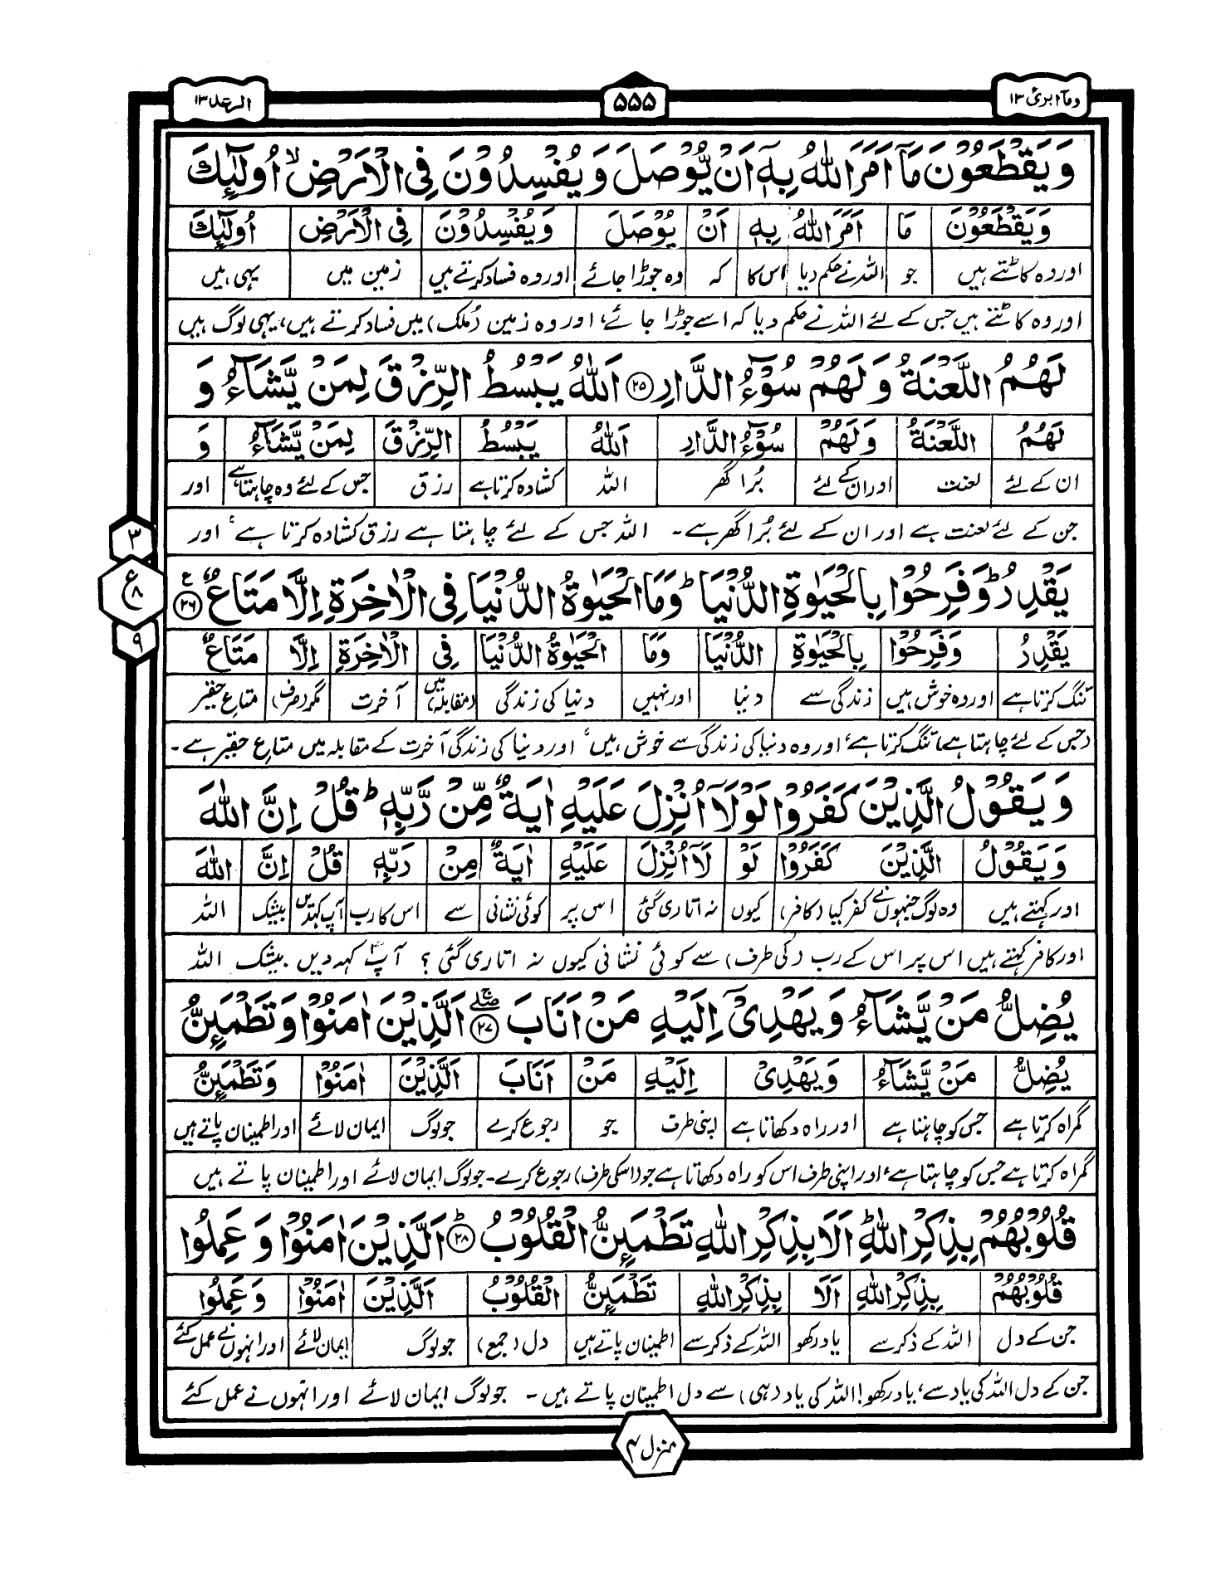 الرعد ١٣
۵۵۵
وما ابرئ ١٣
وَ يَقْطَعُوْنَ مَاۤ اَمَرَ اللّٰهُ بِهٖۤ اَنْ يُّوْصَلَ وَ يُفْسِدُوْنَ فِى الْاَرْضِ ۙ اُولٰٓئِكَ
وَيَقْطَعُوْنَ مَا اَمَرَ اللّٰهُ بِهٖ اَنْ يُوْصَلَ وَيُفْسِدُوْنَ فِى الْاَرْضِ اُولٰٓئِكَ
اور وہ کاٹتے ہیں جو اللہ نے حکم دیا اس کا کہ وہ جوڑا جائے اور وہ فساد کرتے ہیں زمین میں یہی ہیں
اور وہ کاٹتے ہیں جس کے لئے اللہ نے حکم دیا کہ اسے جوڑا جائے، اور وہ زمین (مُلک) میں فساد کرتے ہیں، یہی لوگ ہیں
لَهُمُ اللَّعْنَةُ وَ لَهُمْ سُوْٓءُ الدَّارِ ﴿۲۵﴾ اَللّٰهُ يَبْسُطُ الرِّزْقَ لِمَنْ يَّشَآءُ وَ
لَهُمُ اللَّعْنَةُ وَلَهُمْ سُوْٓءُ الدَّارِ اَللّٰهُ يَبْسُطُ الرِّزْقَ لِمَنْ يَّشَآءُ وَ
ان کے لئے لعنت اور ان کے لئے بُرا گھر اللہ کشادہ کرتا ہے رزق جس کے لئے وہ چاہتا ہے اور
جن کے لئے لعنت ہے اور ان کے لئے بُرا گھر ہے۔ اللہ جس کے لئے چاہتا ہے رزق کشادہ کرتا ہے، اور
٣
ع
٨
٩
يَقْدِرُ ؕ وَ فَرِحُوْا بِالْحَيٰوةِ الدُّنْيَا ؕ وَمَا الْحَيٰوةُ الدُّنْيَا فِى الْاٰخِرَةِ اِلَّا مَتَاعٌ ﴿۲۶﴾ ع
يَقْدِرُ وَفَرِحُوْا بِالْحَيٰوةِ الدُّنْيَا وَمَا الْحَيٰوةُ الدُّنْيَا فِى الْاٰخِرَةِ اِلَّا مَتَاعٌ
تنگ کرتا ہے اور وہ خوش ہیں زندگی سے دنیا اور نہیں دنیا کی زندگی (مقابلہ) میں آخرت مگر (صرف) متاع حقیر
(جس کے لئے چاہتا ہے) تنگ کرتا ہے، اور وہ دنیا کی زندگی سے خوش ہیں، اور دنیا کی زندگی آخرت کے مقابلہ میں متاع حقیر ہے۔
وَ يَقُوْلُ الَّذِيْنَ كَفَرُوْا لَوْلَاۤ اُنْزِلَ عَلَيْهِ اٰيَةٌ مِّنْ رَّبِّهٖ ؕ قُلْ اِنَّ اللّٰهَ
وَيَقُوْلُ الَّذِيْنَ كَفَرُوْا لَوْ لَاۤ اُنْزِلَ عَلَيْهِ اٰيَةٌ مِنْ رَبِّهٖ قُلْ اِنَّ اللّٰهَ
اور کہتے ہیں وہ لوگ جنہوں نے کفر کیا (کافر) کیوں نہ اتاری گئی اس پر کوئی نشانی سے اس کا رب آپ کہدیں بیشک اللہ
اور کافر کہتے ہیں اس پر اس کے رب (کی طرف) سے کوئی نشانی کیوں نہ اتاری گئی؟ آپؐ کہہ دیں بیشک اللہ
يُضِلُّ مَنْ يَّشَآءُ وَ يَهْدِىْۤ اِلَيْهِ مَنْ اَنَابَ ﴿۲۷﴾ اَلَّذِيْنَ اٰمَنُوْا وَ تَطْمَئِنُّ
يُضِلُّ مَنْ يَّشَآءُ وَيَهْدِىْ اِلَيْهِ مَنْ اَنَابَ اَلَّذِيْنَ اٰمَنُوْا وَتَطْمَئِنُّ
گمراہ کرتا ہے جس کو چاہتا ہے اور راہ دکھاتا ہے اپنی طرف جو رجوع کرے جو لوگ ایمان لائے اور اطمینان پاتے ہیں
گمراہ کرتا ہے جس کو چاہتا ہے، اور اپنی طرف اس کو راہ دکھاتا ہے جو (اسکی طرف) رجوع کرے۔ جو لوگ ایمان لائے اور اطمینان پاتے ہیں
قُلُوْبُهُمْ بِذِكْرِ اللّٰهِ ؕ اَلَا بِذِكْرِ اللّٰهِ تَطْمَئِنُّ الْقُلُوْبُ ﴿۲۸﴾ ؕ اَلَّذِيْنَ اٰمَنُوْا وَ عَمِلُوا
قُلُوْبُهُمْ بِذِكْرِ اللّٰهِ اَلَا بِذِكْرِ اللّٰهِ تَطْمَئِنُّ الْقُلُوْبُ اَلَّذِيْنَ اٰمَنُوْا وَ عَمِلُوا
جن کے دل اللہ کے ذکر سے یاد رکھو اللہ کے ذکر سے اطمینان پاتے ہیں دل (جمع) جو لوگ ایمان لائے اور انہوں نے عمل کئے
جن کے دل اللہ کی یاد سے، یاد رکھو! اللہ کی یاد (ہی) سے دل اطمینان پاتے ہیں۔ جو لوگ ایمان لائے اور انہوں نے عمل کئے
منزل ٣